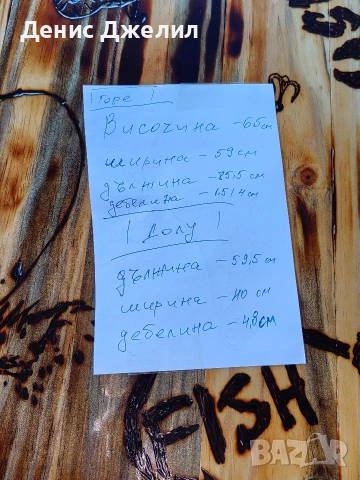 Денис Джелил
Горе
Височина - 65 см
ширина - 59 см
дължина - 85,5 см
дебелина - 1,51,4 см
Долу
дължина - 59,5 см
ширина - 40 см
дебелина - 4,8 см
FISH
BAZAR